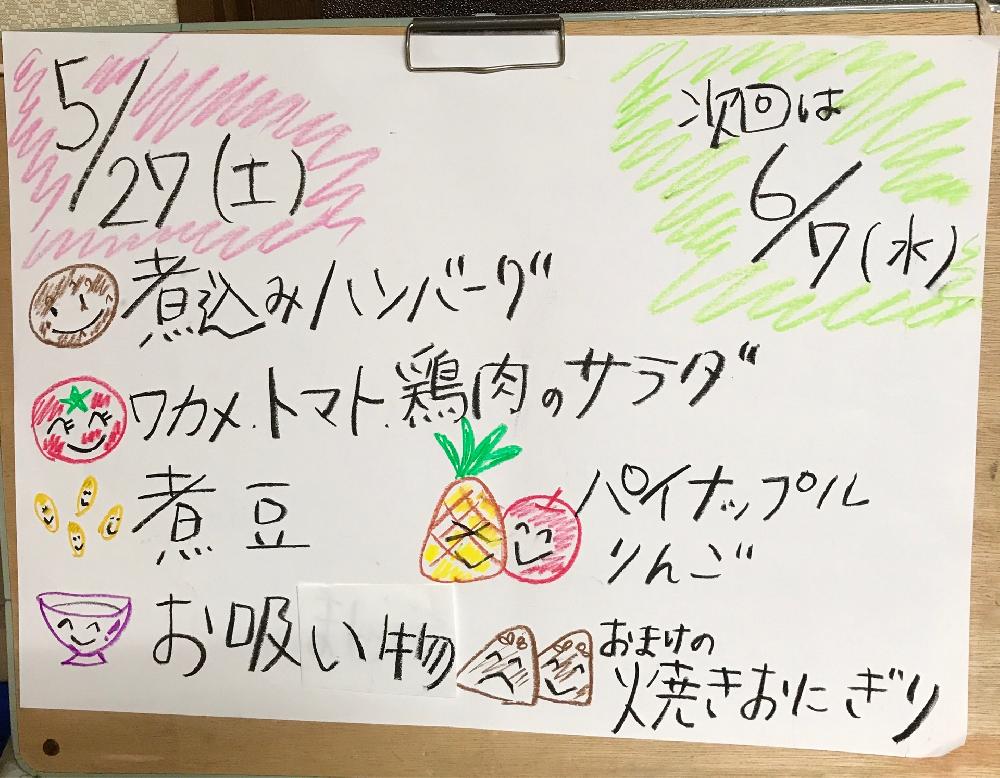 5/27(土)
次回は
6/7(水)
煮込みハンバーグ
ワカメ.トマト.鶏肉のサラダ
煮豆
パイナップル
りんご
お吸い物
おまけの
焼きおにぎり